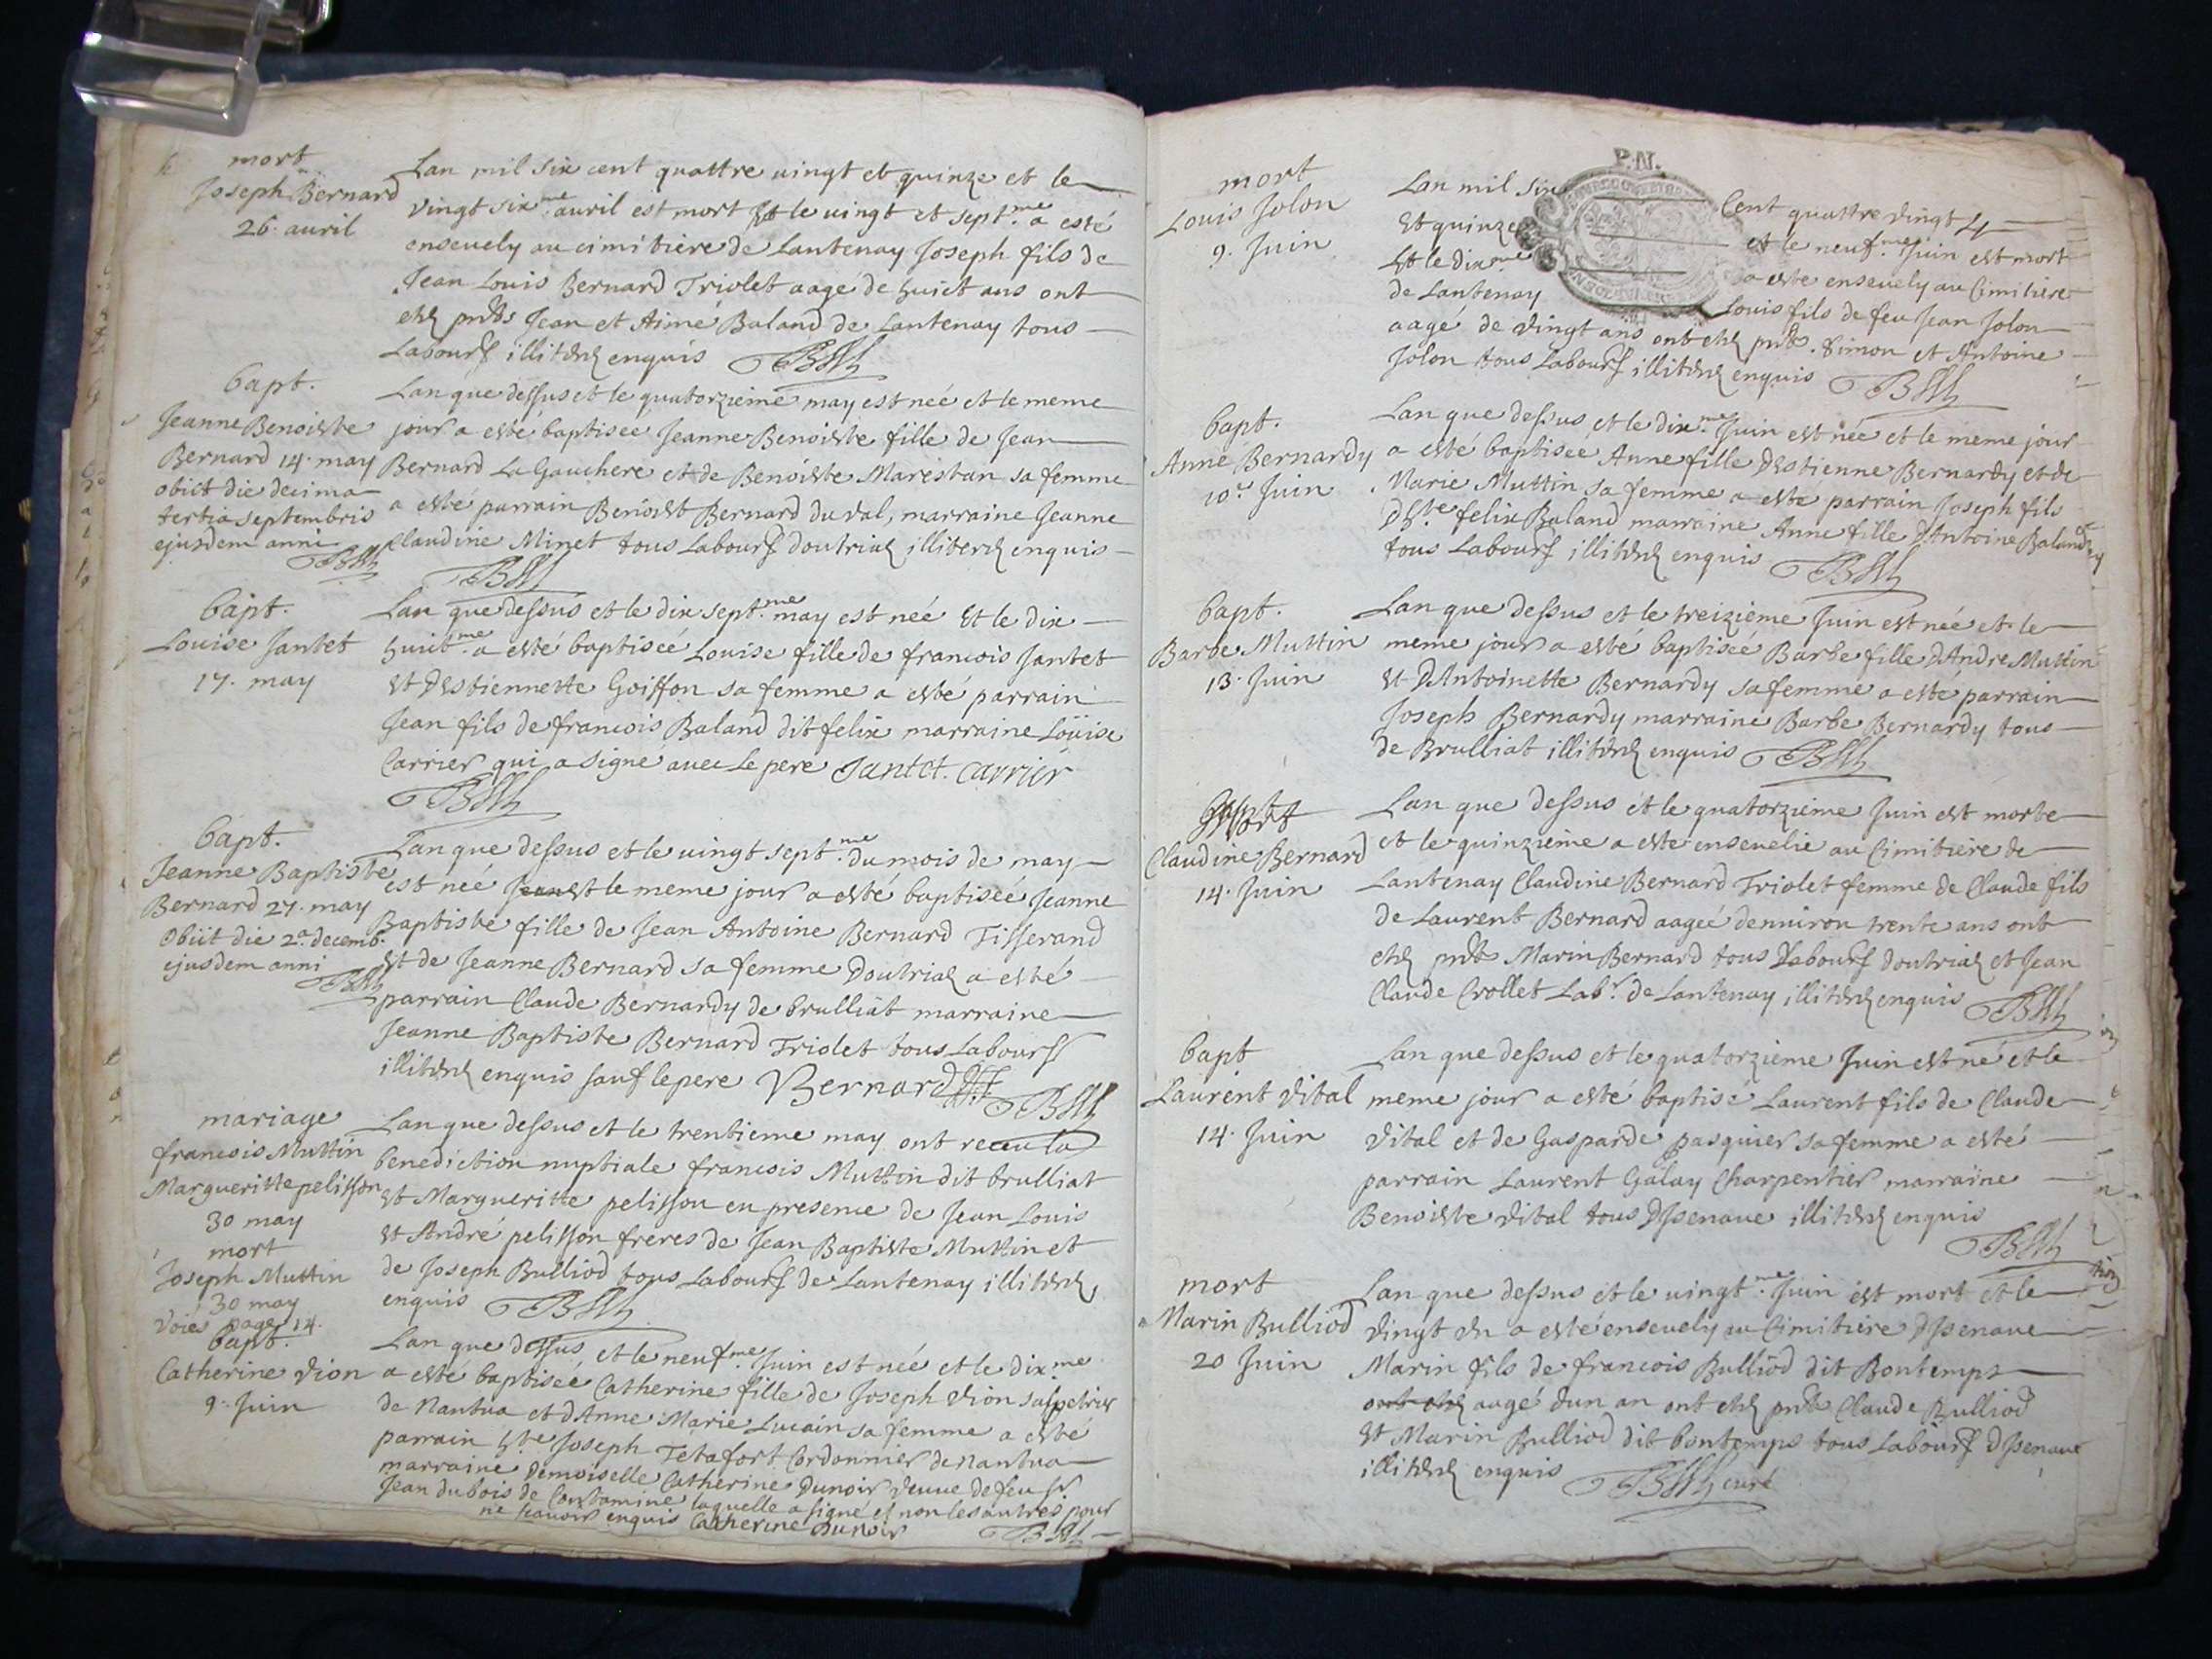 mort
Joseph Bernard
26. auril
Lan mil six cent quattre uingt et quinze et le
vingt six.me auril est mort Et le uingt et sept.me a esté
enseuely au cimitiere de Lantenay Joseph fils de
Jean Louis Bernard Triolet aagé de huict ans ont
Jean et Aimé Baland de Lantenay tous
enquis
bapt.
Jeanne Benoiste
Bernard 14. may
obiit die decima
tertia septembris
ejusdem anni
Lan que dessus et le quatorzieme may est neé et le meme
jour a esté baptiseé Jeanne Benoiste fille de Jean
Bernard La Gauchere et de Benoiste Marestan sa femme
a esté parrain Benoist Bernard du val, marraine Jeanne
Claudine Minet tous Labours enquis
bapt.
Louise Jantet
17. may
Lan que dessus et le dix sept.me may est neé Et le dix
huit.me a esté baptiseé Louise fille de francois Jantet
Et Destiennette Goiffon sa femme a esté parrain
Jean fils de francois Baland dit felix marraine Loüise
Carrier qui a signé auec le pere Jantet. Carrier
bapt.
Jeanne Baptiste
Bernard 27. may
Obiit die 2a. decemb.
ejusdem anni
Lan que dessus et le uingt sept.me du mois de may
est neé Et le meme jour a esté baptiseé Jeanne
Baptiste fille de Jean Antoine Bernard Tisserand
Et de Jeanne Bernard sa femme a esté
parrain Claude Bernardy de brulliat marraine
Jeanne Baptiste Bernard Triolet tous Labours
enquis sauf le pere Bernard
mariage
francois Muttin
Margueritte pelisson
30 may
Lan que dessus et le trentieme may ont receu la
benediction nuptiale francois Muttin dit brulliat
Et Margueritte pelisson en presence de Jean Louis
Et André pelisson freres de Jean Baptiste Muttin et
de Joseph Bulliod tous Labours de Lantenay
enquis
mort
Joseph Muttin
30 may
Voiés page 14.
bapt.
Catherine Vion
9. Juin
Lan que dessus et le neuf.me Juin est neé et le dix.me
a esté baptiseé Catherine fille de Joseph Vion
de Nantua et dAnne Marie Lucain sa femme a esté
parrain Joseph Tetafort Cordonnier de Nantua
marraine Demoiselle Catherine Dunoir Veuue de feu Sr
Jean dubois de Contamine laquelle a signé et non les autres pour
ne scauoir enquis Catherine Dunoir
P. N.
mort
Louis Jolon
9. Juin
Lan mil six Cent quattre vingt
Et quinze et le neuf.me Juin est mort
Et le dix.me a esté enseuely au Cimitiere
de Lantenay Louis fils de feu Jean Jolon
aagé de vingt ans ont Simon et Antoine
Jolon tous Labours enquis
bapt.
Anne Bernardy
10. Juin
Lan que dessus et le dix.me Juin est neé et le meme jour
a esté baptiseé Anne fille Destienne Bernardy et de
Marie Muttin sa femme a esté parrain Joseph fils
felix Baland marraine Anne fille DAntoine
tous Labours enquis
bapt.
Barbe Muttin
13. Juin
Lan que dessus et le treizieme Juin est neé et le
meme jour a esté baptiseé Barbe fille DAndre Muttin
Et DAntoinette Bernardy sa femme a esté parrain
Joseph Bernardy marraine Barbe Bernardy tous
de Brulliat enquis
mort
Claudine Bernard
14. Juin
Lan que dessus et le quatorzieme Juin est morte
et le quinzieme a esté enseuelie au Cimitiere de
Lantenay Claudine Bernard Triolet femme de Claude fils
de Laurent Bernard aageé denuiron trente ans ont
Marin Bernard tous Labours et Jean
Claude Crollet Labr. de Lantenay enquis
bapt
Laurent Vital
14. Juin
Lan que dessus et le quatorzieme Juin est né et le
meme jour a esté baptisé Laurent fils de Claude
Vital et de Gasparde pasquier sa femme a esté
parrain Laurent Galay Charpentier marraine
Benoiste Vital tous DIsenaue enquis
mort
Marin Bulliod
20 Juin
Lan que dessus et le uingt.me Juin est mort et le
Vingt Un a esté enseuely au Cimitiere DIsenaue
Marin fils de francois Bulliod dit Bontemps
aagé dun an ont Claude Bulliod
Et Marin Bulliod dit bontemps tous Labours DIsenaue
enquis curé